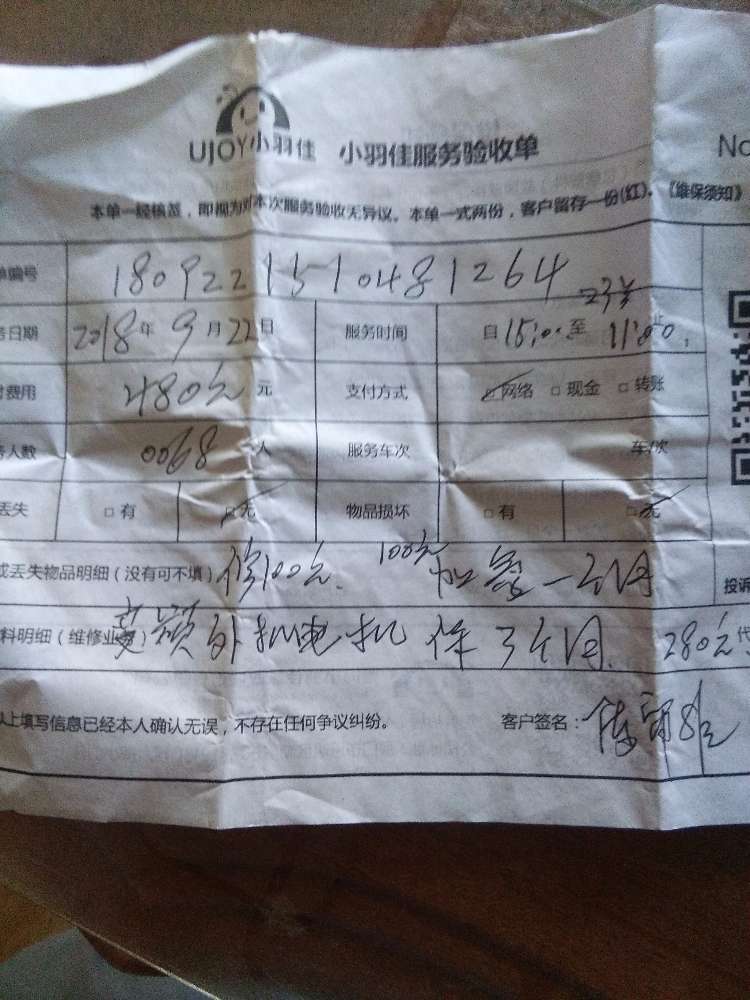 UJOY小羽佳 小羽佳服务验收单 No
本单一经核签，即视为对本次服务验收无异议。本单一式两份，客户留存一份(红)。《维保须知》
单编号 180922151048 1264
务日期 2018年 9月22日 服务时间 自15:00至 11:00止
付费用 480元 元 支付方式 网络 □ 现金 □ 转账
务人数 0068 人 服务车次 车/次
丢失 □ 有 □ 无 物品损坏 □ 有 □ 无
或丢失物品明细（没有可不填） 修100元、 100元 一个月 投诉
料明细（维修业务） 外机电机 保3个月. 280元 代
以上填写信息已经本人确认无误，不存在任何争议纠纷。 客户签名：